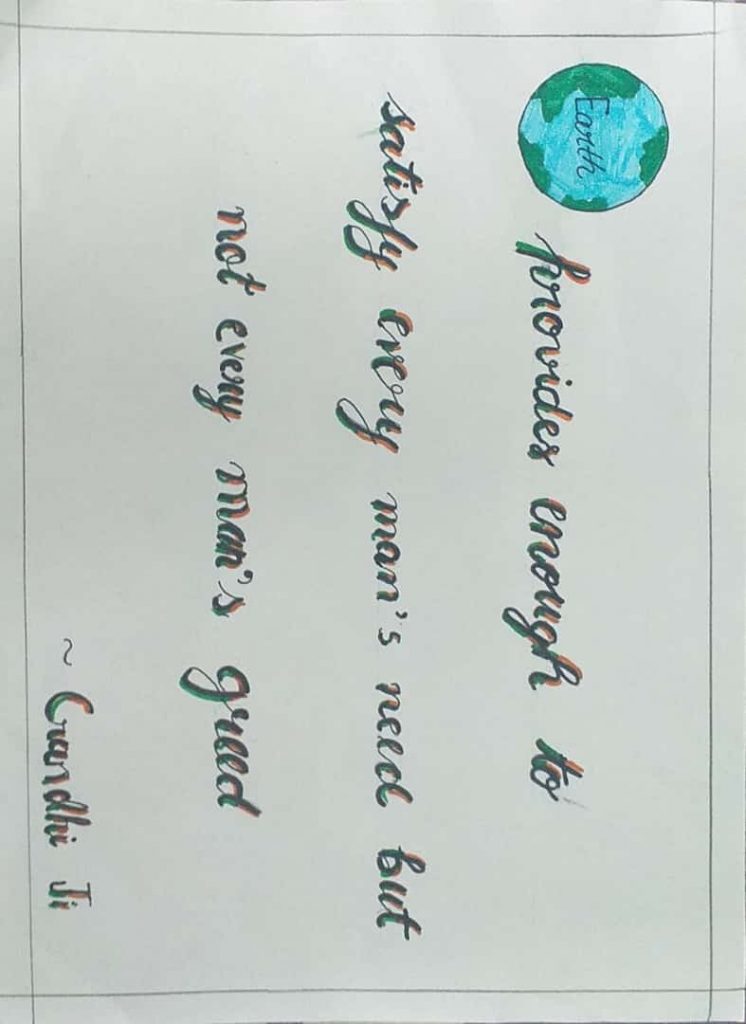 Earth provides enough to
satisfy every man's need but
not every man's greed
~ Gandhi Ji